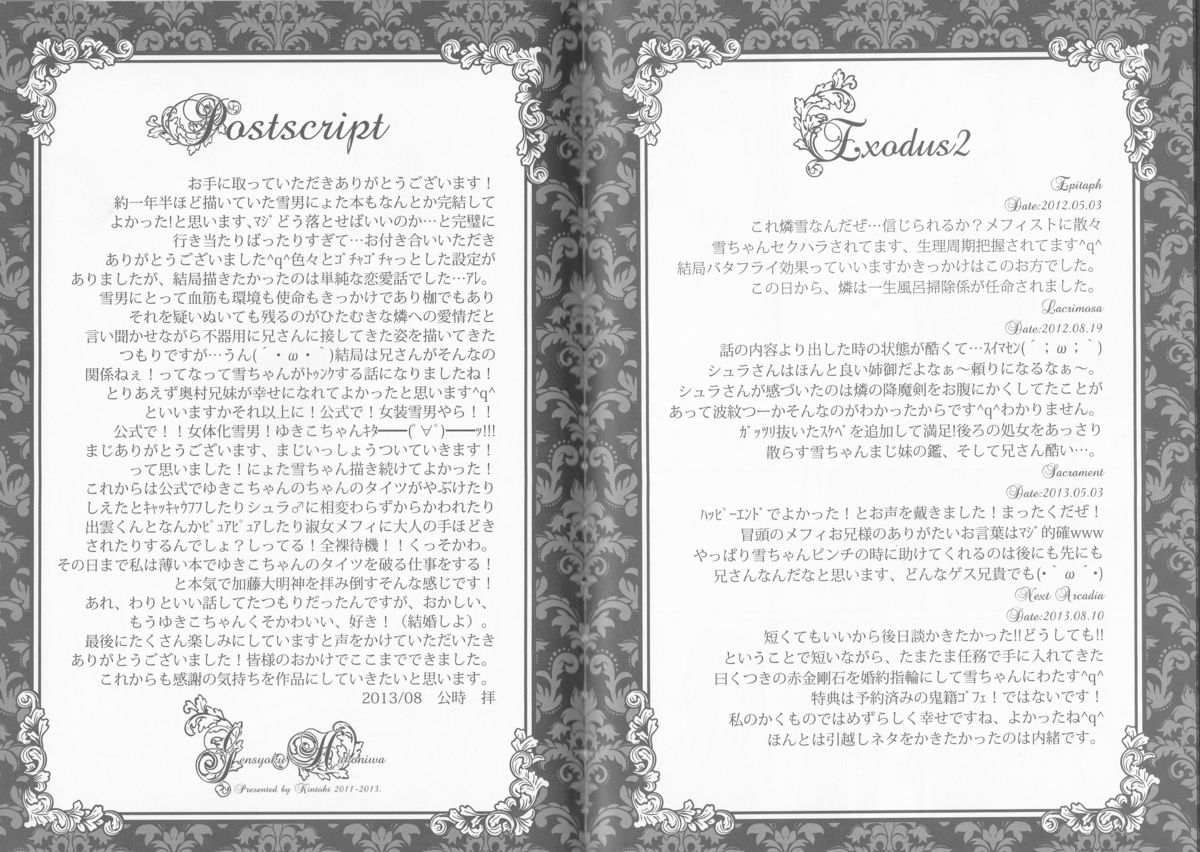 Postscript
お手に取っていただきありがとうございます！
約一年半ほど描いていた雪男にょた本もなんとか完結して
よかった！と思います、ﾏｼﾞどう落とせばいいのか…と完璧に
行き当たりばったりすぎて…お付き合いいただき
ありがとうございました^q^色々とｺﾞﾁｬｺﾞﾁｬっとした設定が
ありましたが、結局描きたかったのは単純な恋愛話でした…ｱﾚ。
雪男にとって血筋も環境も使命もきっかけであり枷でもあり
それを疑いぬいても残るのがひたむきな燐への愛情だと
言い聞かせながら不器用に兄さんに接してきた姿を描いてきた
つもりですが…うん(´・ω・｀)結局は兄さんがそんなの
関係ねぇ！ってなって雪ちゃんがﾄｩﾝｸする話になりましたね！
とりあえず奥村兄妹が幸せになれてよかったと思います^q^
といいますかそれ以上に！公式で！女装雪男やら！！
公式で！！女体化雪男！ゆきこちゃんｷﾀ━━(ﾟ∀ﾟ)━━ｯ!!!
まじありがとうございます、まじいっしょうついていきます！
って思いました！にょた雪ちゃん描き続けてよかった！
これからは公式でゆきこちゃんのちゃんのタイツがやぶけたり
しえたとｷｬｯｷｬｳﾌﾌしたりシュラ♂に相変わらずからかわれたり
出雲くんとなんかﾋﾟｭｱﾋﾟｭｱしたり淑女メフィに大人の手ほどき
されたりするんでしょ？しってる！全裸待機！！くっそかわ。
その日まで私は薄い本でゆきこちゃんのタイツを破る仕事をする！
と本気で加藤大明神を拝み倒すそんな感じです！
あれ、わりといい話してたつもりだったんですが、おかしい、
もうゆきこちゃんくそかわいい、好き！（結婚しよ）。
最後にたくさん楽しみにしていますと声をかけていただいたき
ありがとうございました！皆様のおかけでここまでできました。
これからも感謝の気持ちを作品にしていきたいと思います。
2013/08　公時　拝
Gensyoku Hakoniwa
Presented by Kintoki 2011-2013.
Exodus2
Epitaph
Date:2012.05.03
これ燐雪なんだぜ…信じられるか？メフィストに散々
雪ちゃんセクハラされてます、生理周期把握されてます^q^
結局バタフライ効果っていいますかきっかけはこのお方でした。
この日から、燐は一生風呂掃除係が任命されました。
Lacrimosa
Date:2012.08.19
話の内容より出した時の状態が酷くて…ｽｲﾏｾﾝ(´；ω；｀)
シュラさんはほんと良い姉御だよなぁ～頼りになるなぁ～。
シュラさんが感づいたのは燐の降魔剣をお腹にかくしてたことが
あって波紋つーかそんなのがわかったからです^q^わかりません。
ｶﾞｯﾂﾘ抜いたｽｹﾍﾞを追加して満足!後ろの処女をあっさり
散らす雪ちゃんまじ妹の鑑、そして兄さん酷い…。
Sacrament
Date:2013.05.03
ﾊｯﾋﾟｰｴﾝﾄﾞでよかった！とお声を戴きました！まったくだぜ！
冒頭のメフィお兄様のありがたいお言葉はﾏｼﾞ的確www
やっぱり雪ちゃんピンチの時に助けてくれるのは後にも先にも
兄さんなんだなと思います、どんなゲス兄貴でも(•｀ω´•)
Next Arcadia
Date:2013.08.10
短くてもいいから後日談かきたかった!!どうしても!!
ということで短いながら、たまたま任務で手に入れてきた
曰くつきの赤金剛石を婚約指輪にして雪ちゃんにわたす^q^
特典は予約済みの鬼籍ｺﾞﾌｪ！ではないです！
私のかくものではめずらしく幸せですね、よかったね^q^
ほんとは引越しネタをかきたかったのは内緒です。